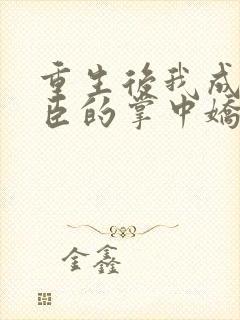 重生後我成
臣的掌中嬌
金鑫